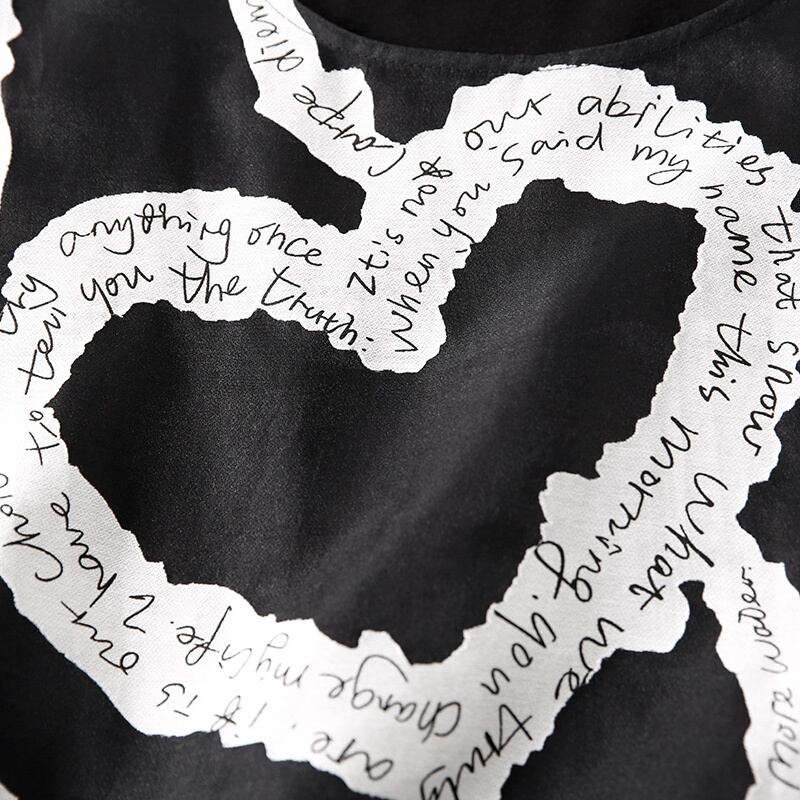 Carpe diem
It is not our abilities that show what we truly are. it is our choi
When you said my name this morning. you change my life. I have to tell you the truth:
try anything once
More water.